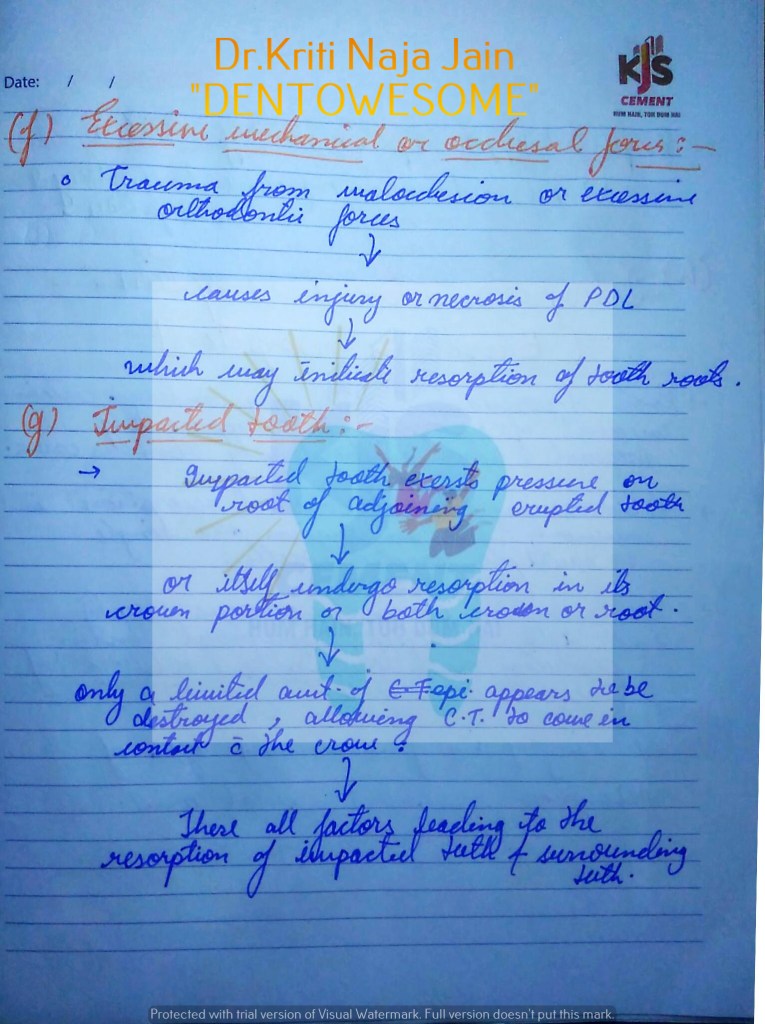 Dr.Kriti Naja Jain
"DENTOWESOME"
Date: / /
KJS
CEMENT
HUM NAHI, TOH DUM NAHI
(f) Excessive mechanical or occlusal forces :-
Trauma from malocclusion or excessive
orthodontic forces
↓
causes injury or necrosis of PDL
↓
which may initiate resorption of tooth roots.
(g) Impacted tooth :-
→ Impacted tooth exersts pressure on
root of adjoining erupted tooth
↓
or itself undergo resorption in its
crown portion or both crown or root.
↓
only a limited amt. of epi. appears to be
destroyed, allowing C.T. to come in
contact c̄ the crown.
↓
These all factors leading to the
resorption of impacted teeth & surrounding
teeth.
Protected with trial version of Visual Watermark. Full version doesn't put this mark.